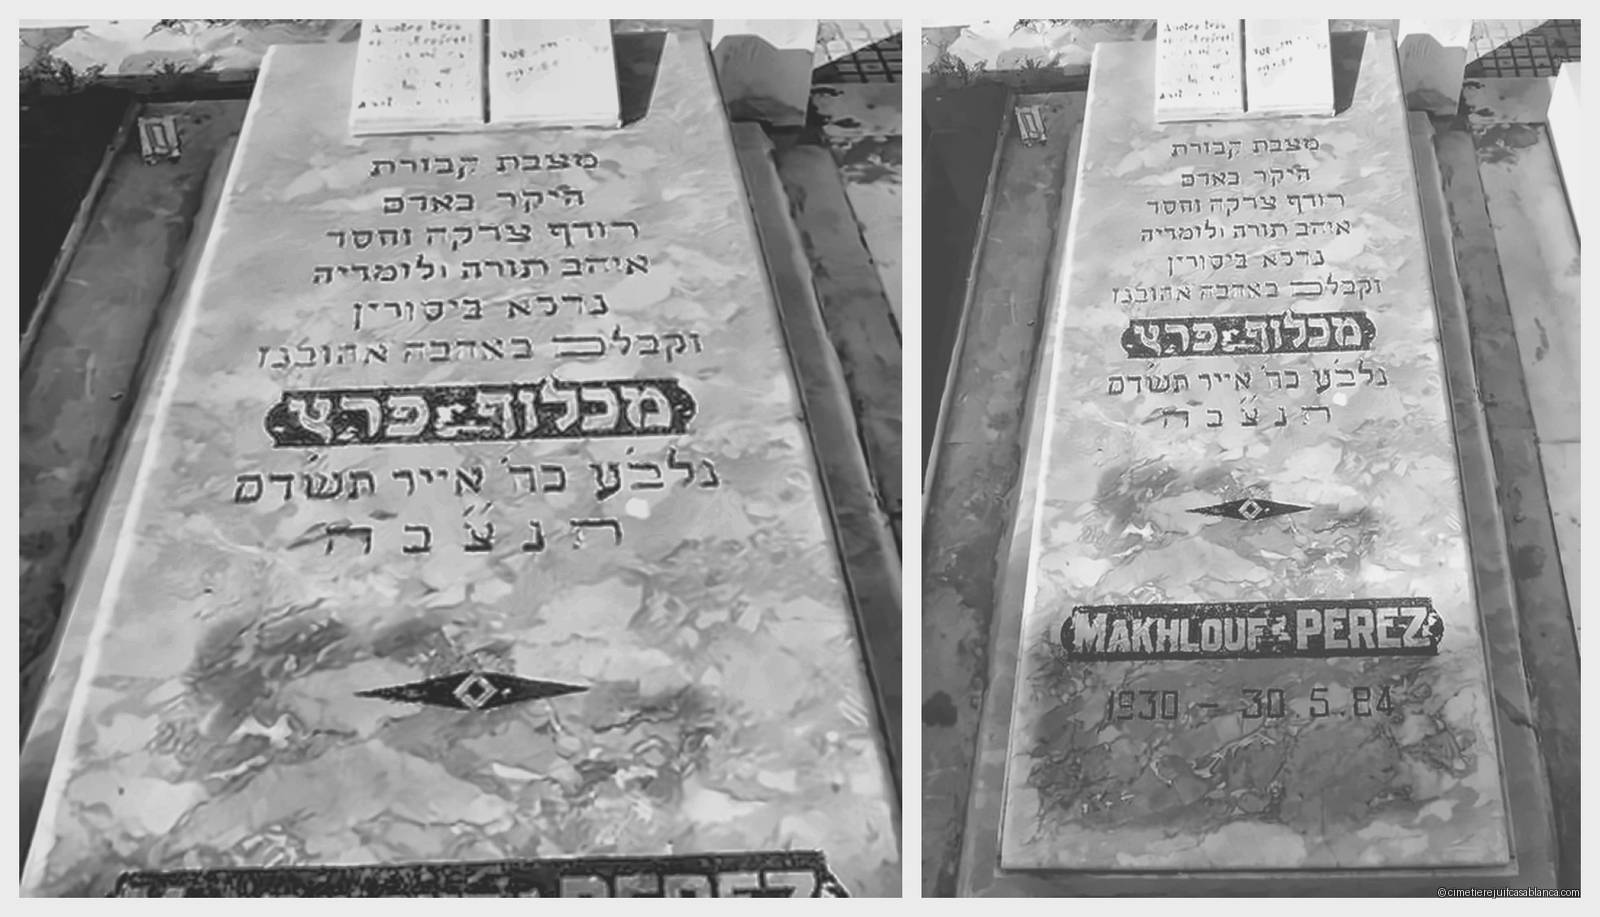 מצבת קבורת
היקר באדם
רודף צדקה וחסד
אוהב תורה ולומדיה
נדכא ביסורין
וקבלם באהבה
מכלוף פרץ
נלב״ע כה׳ אייר תשד״ם
ת נ צ ב ה
PEREZ
מצבת קבורת
היקר באדם
רודף צדקה וחסד
אוהב תורה ולומדיה
נדכא ביסורין
וקבלם באהבה
מכלוף פרץ
נלב״ע כה׳ אייר תשד״ם
ת נ צ ב ה
MAKHLOUF PEREZ
1930 - 30.5.84
© cimetierejuifcasablanca.com